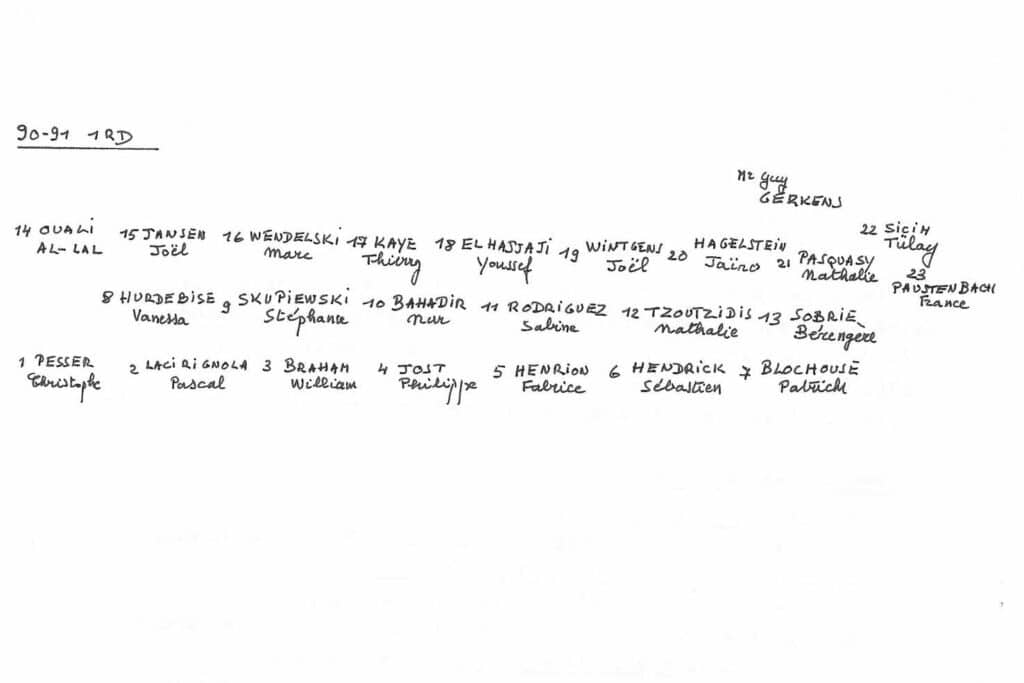 90-91 1RD
Mr Guy
GERKENS
14 OUALI 15 JANSEN 16 WENDELSKI 17 KAYE 18 EL HAJJAJI 19 WINTGENS 20 HAGELSTEIN 21 PASQUASY 22 SICIH
AL-LAL Joël Marc Thierry Youssef Joël Jaïro Nathalie Tülay
23
PAUSTENBACH
France
8 HURDEBISE 9 SKUPIEWSKI 10 BAHADIR 11 RODRIGUEZ 12 TZOUTZIDIS 13 SOBRIE
Vanessa Stéphanie Nur Sabine Nathalie Bérengère
1 PESSER 2 LACIRIGNOLA 3 BRAHAM 4 JOST 5 HENRION 6 HENDRICK 7 BLOCHOUSE
Christophe Pascal William Philippe Fabrice Sébastien Patrick